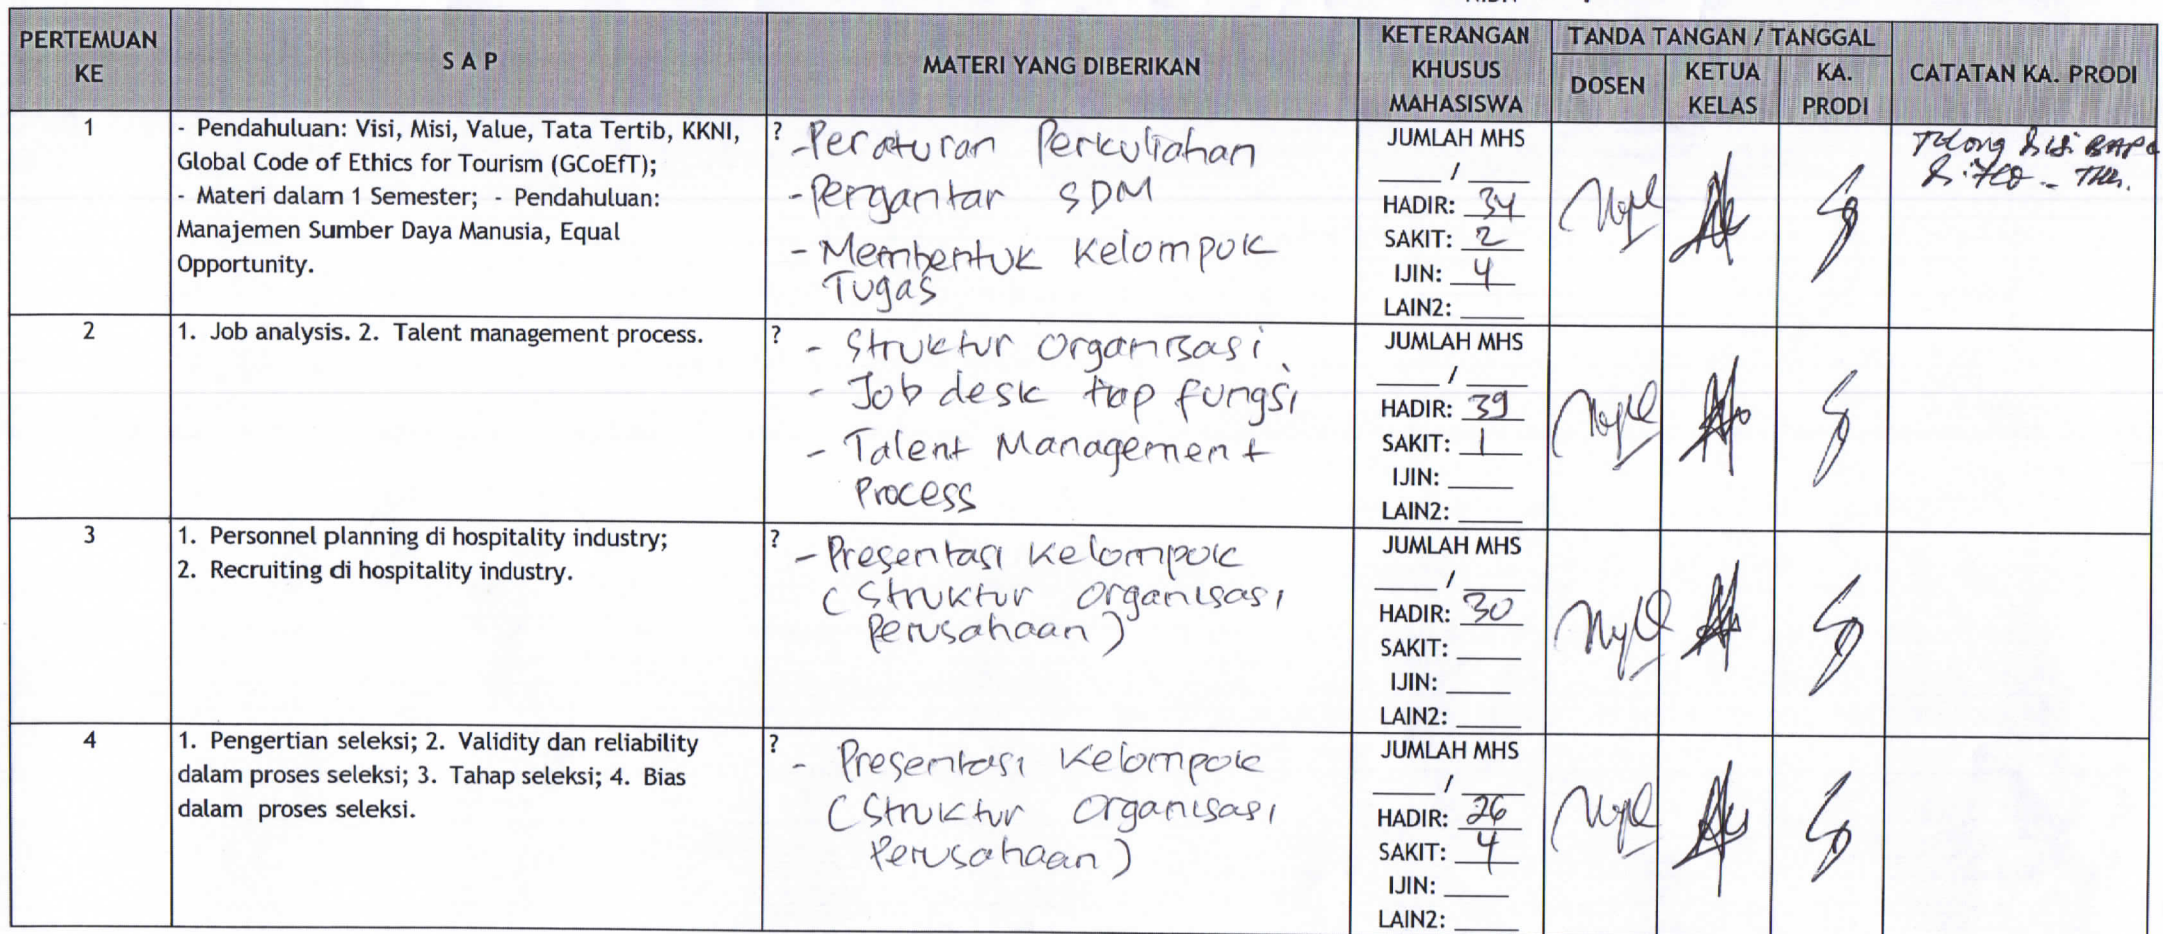 PERTEMUAN KE
S A P
MATERI YANG DIBERIKAN
KETERANGAN KHUSUS MAHASISWA
TANDA TANGAN / TANGGAL
DOSEN
KETUA KELAS
KA. PRODI
CATATAN KA. PRODI
1
- Pendahuluan: Visi, Misi, Value, Tata Tertib, KKNI,
Global Code of Ethics for Tourism (GCoEfT);
- Materi dalam 1 Semester; - Pendahuluan:
Manajemen Sumber Daya Manusia, Equal
Opportunity.
? - Peraturan Perkuliahan
- Pergantar SDM
- Membentuk Kelompok
Tugas
JUMLAH MHS
___ / ___
HADIR: 34
SAKIT: 2
IJIN: 4
LAIN2: ___
Tolong
2
1. Job analysis. 2. Talent management process.
? - Struktur Organisasi
- Job desk tiap fungsi
- Talent Management
Process
JUMLAH MHS
___ / ___
HADIR: 39
SAKIT: 1
IJIN: ___
LAIN2: ___
3
1. Personnel planning di hospitality industry;
2. Recruiting di hospitality industry.
? - Presentasi Kelompok
( Struktur Organisasi
Perusahaan )
JUMLAH MHS
___ / ___
HADIR: 30
SAKIT: ___
IJIN: ___
LAIN2: ___
4
1. Pengertian seleksi; 2. Validity dan reliability
dalam proses seleksi; 3. Tahap seleksi; 4. Bias
dalam proses seleksi.
? - Presentasi Kelompok
( Struktur Organisasi
Perusahaan )
JUMLAH MHS
___ / ___
HADIR: 26
SAKIT: 4
IJIN: ___
LAIN2: ___